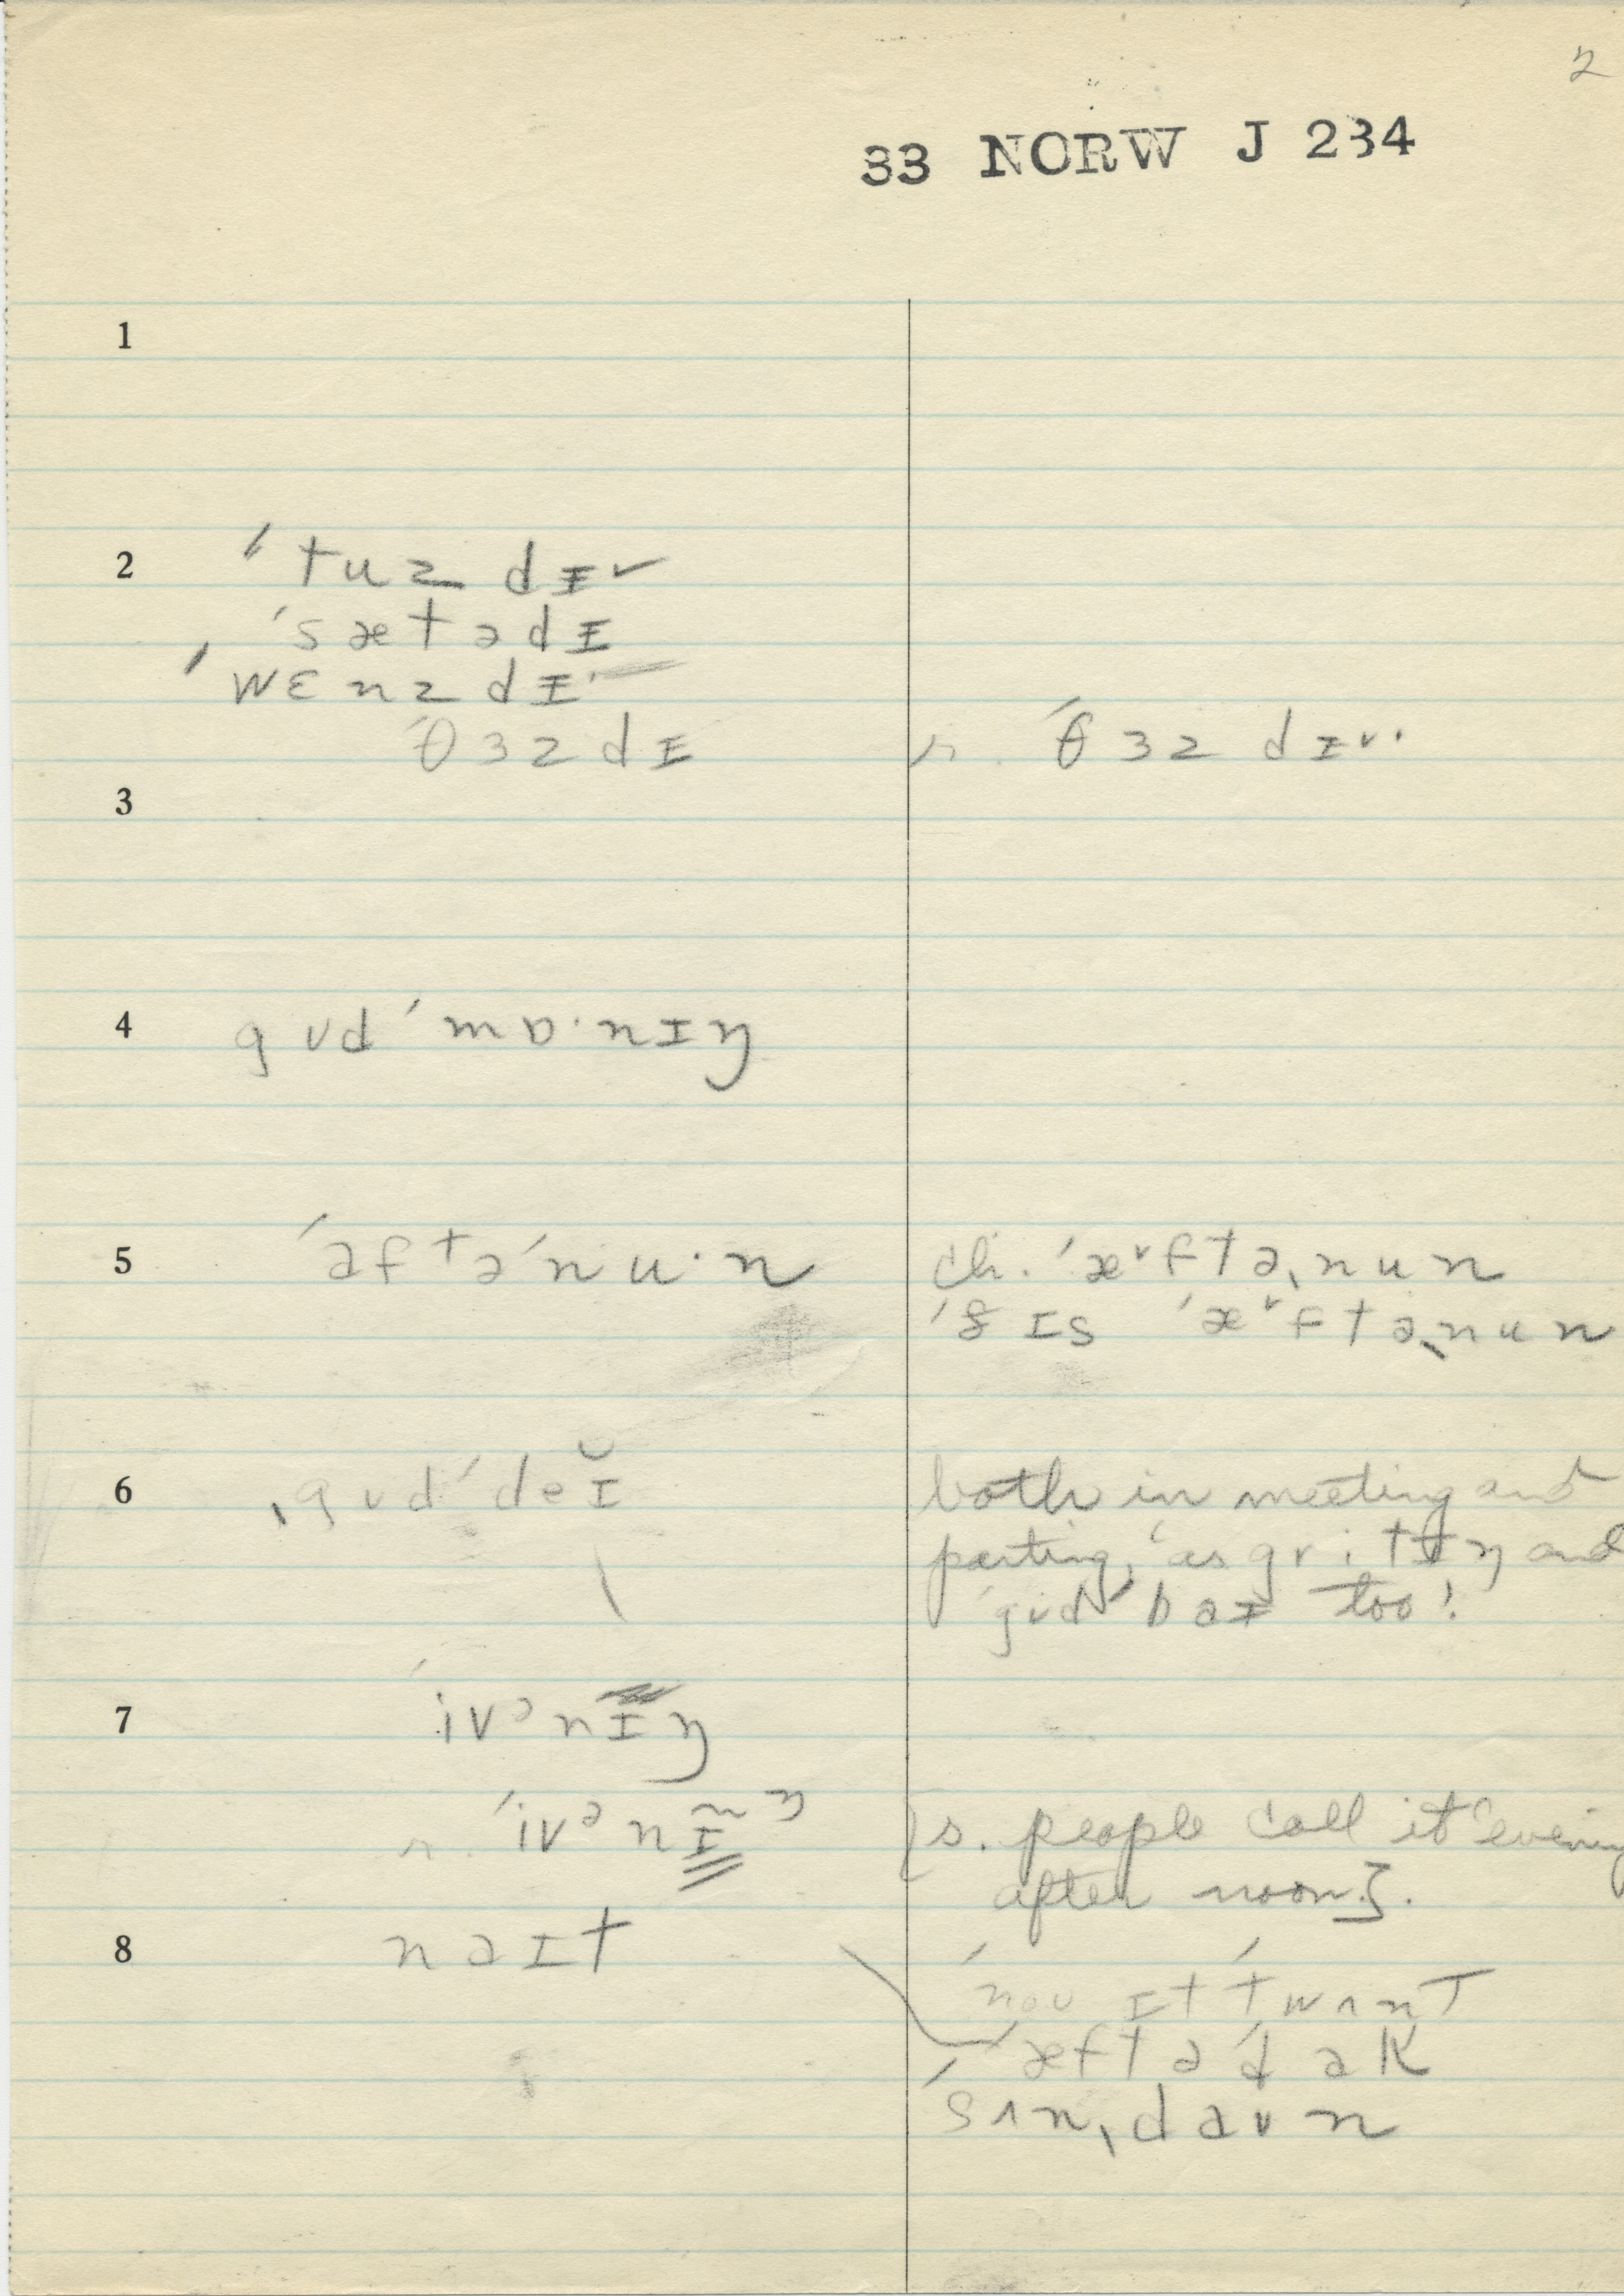 2
33 NORW J 234
1
2 ˈtuzdɪ˅
ˈsætədɪ
ˈwɛnzdɪ
ˈθɜzdɪ r. ˈθɜzdɪ˅·
3
4 gʊdˈmɒ·nɪŋ
5 ˈaftəˈnu·n ch. ˈæ˅ftəˌnun
ˈðɪs ˈæ˅ftəˌnun
6 ˌgʊdˈdeɪ̆ both in meeting and
parting, as gri·tɪŋ and
gʊdˈbaɪ too!
7 ˈivᵊnɪŋ
r. ˈivᵊnɪ̃ᵑ [s. people call it evening
after noon].
8 naɪt
ˈnoʊ ɪt ˈtwʌnt
æftə ˈdak
ˈsʌnˌdaʊn